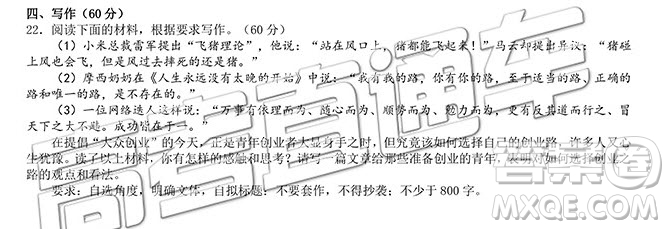 四、写作（60分）
22．阅读下面的材料，根据要求写作。（60分）
（1）小米总裁雷军提出“飞猪理论”，他说：“站在风口上，猪都能飞起来！”马云却提出异议：“猪碰
上风也会飞，但是风过去摔死的还是猪。”
（2）摩西奶奶在《人生永远没有太晚的开始》中说：“我有我的路，你有你的路，至于适当的路，正确的
路和唯一的路，是不存在的。”
（3）一位网络达人这样说：“万事有依理而为、随心而为、顺势而为、勉力而为，更有反其道而行之、冒
天下之大不韪。成功皆在于一。”
在提倡“大众创业”的今天，正是青年创业者大显身手之时，但究竟该如何选择自己的创业路，许多人又心
生犹豫。读了以上材料，你有怎样的感触和思考？请写一篇文章给那些准备创业的青年，表明对如何选择创业之
路的观点和看法。
要求：自选角度，明确文体，自拟标题；不要套作，不得抄袭；不少于800字。
高考直通车
MXQE
作业帮
MXQE.COM